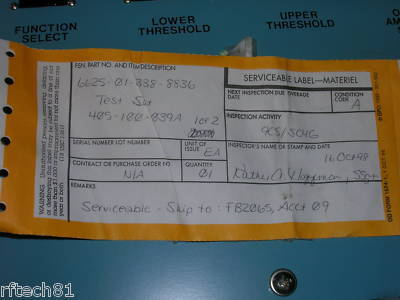 FUNCTION
SELECT
LOWER
THRESHOLD
UPPER
THRESHOLD
FSN, PART NO. AND ITEM DESCRIPTION
6625-01-338-8836
Test Set
405-100-039A 1 of 2
SERVICEABLE LABEL—MATERIEL
NEXT INSPECTION DUE/OVERAGE
CONDITION
CODE
A
INSPECTION ACTIVITY
9CS/SC4G
SERIAL NUMBER/LOT NUMBER
UNIT OF
ISSUE
EA
INSPECTOR'S NAME OR STAMP AND DATE
16 Oct 98
CONTRACT OR PURCHASE ORDER NO
N/A
QUANTITY
01
REMARKS
Serviceable - Ship to - FB2065, Acct 09
WARNING: Unauthorized persons removing, defacing,
or destroying this label may be subject to a fine of not
more than $1,000 or imprisonment for not more than one
year or both
(18 USC 1361)
DD FORM 1574, 1 OCT 66
rftech81